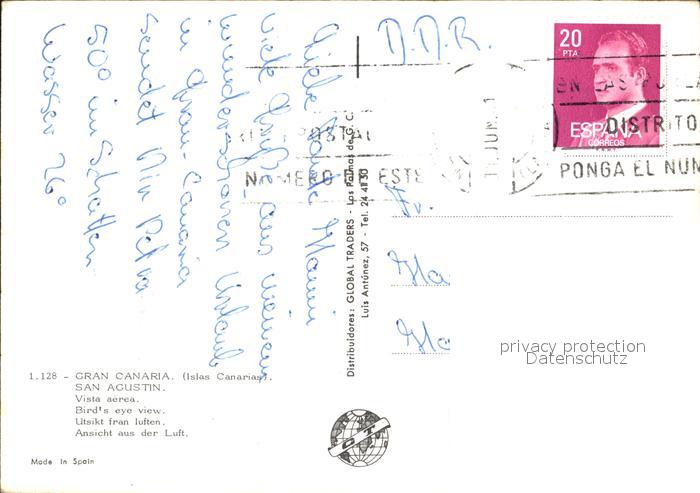 Liebe Tante Mami
viele Grüße aus meinem
wunderschönen Urlaub
in Gran-Canaria
sendet Dir Petra
50° im Schatten
Wasser 26°
D.D.R.
20
PTA
ESPAÑA
CORREOS
EN LAS
DISTRITO
PONGA EL NUM
POSTAL
NUMERO ESTE
JUN. 1
Fr.
Ma
Ma
Distribuidores: GLOBAL TRADERS - Las Palmas de G. C.
Luis Antúnez, 57 - Tel. 24 41 30
privacy protection
Datenschutz
1.128 - GRAN CANARIA. (Islas Canarias).
SAN AGUSTIN.
Vista aérea.
Bird's eye view.
Utsikt fran luften.
Ansicht aus der Luft.
GT
Made in Spain